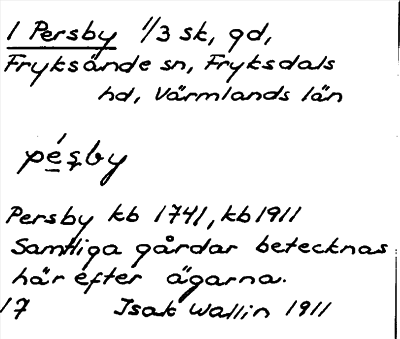 1 Persby 1/3 sk, gd,
Fryksände sn, Fryksdals
hd, Värmlands län
pe̱´ṣby
Persby kb 1741, kb 1911
Samtliga gårdar betecknas
här efter ägarna.
17 Isak Wallin 1911